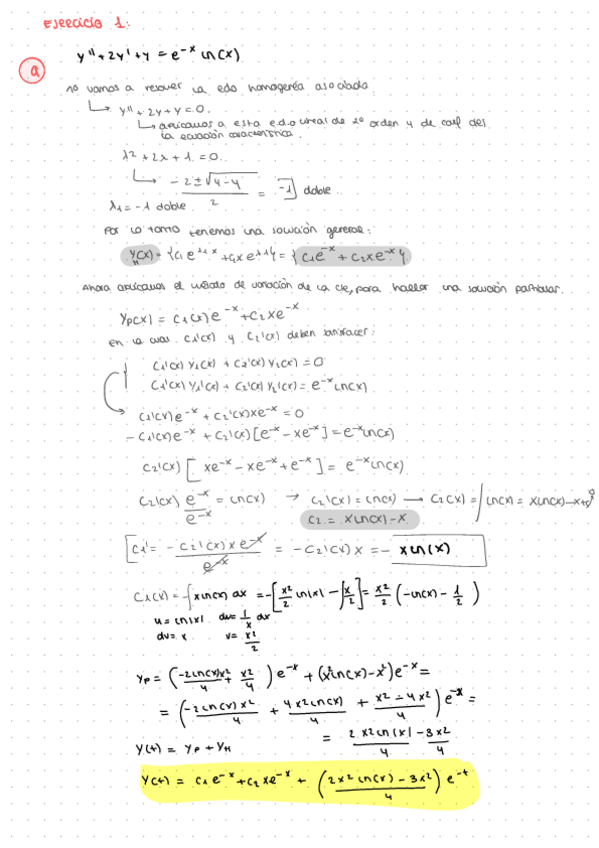 Ejercicio 1:
y'' + 2y' + y = e^-x ln(x)
a
no vamos a resolver la edo homogenéa asociada:
y'' + 2y + y = 0.
aplicamos a esta e.d.o lineal de 2º orden y de coef ctes
la ecuación característica.
λ² + 2λ + 1 = 0.
(-2 ± √(4-4)) / 2 = -1 doble.
λ1 = -1 doble
Por lo tanto tenemos una solución general:
y_H(x) = {c1 e^λ1x + c2 x e^λ1x} = {c1 e^-x + c2 x e^-x}
Ahora aplicamos el método de variación de la cte, para hallar una solución particular.
yp(x) = c1(x) e^-x + c2 x e^-x
en la cual c1'(x) y c2'(x) deben satisfacer:
c1'(x) y1(x) + c2'(x) y2(x) = 0
c1'(x) y1'(x) + c2'(x) y2'(x) = e^-x ln(x)
c1'(x) e^-x + c2'(x) x e^-x = 0
-c1'(x) e^-x + c2'(x) [e^-x - x e^-x] = e^-x ln(x)
c2'(x) [x e^-x - x e^-x + e^-x] = e^-x ln(x)
c2'(x) e^-x / e^-x = ln(x) → c2'(x) = ln(x) → c2(x) = ∫ ln(x) = x ln(x) - x
c2 = x ln(x) - x
c1' = -c2'(x) x e^-x / e^-x = -c2'(x) x = - x ln(x)
c1(x) = -∫ x ln(x) dx = -[x²/2 ln|x| - ∫ x/2] = x²/2 (-ln(x) - 1/2)
u = ln|x| du = 1/x dx
dv = x v = x²/2
yp = (-2 ln(x) x²/4 + x²/4) e^-x + (x² ln(x) - x²) e^-x =
= (-2 ln(x) x²/4 + 4x² ln(x)/4 + (x² - 4x²)/4) e^-x =
= 2x² ln|x|/4 - 3x²/4
y(t) = yp + yH
y(t) = c1 e^-x + c2 x e^-x + ((2x² ln(x) - 3x²)/4) e^-t